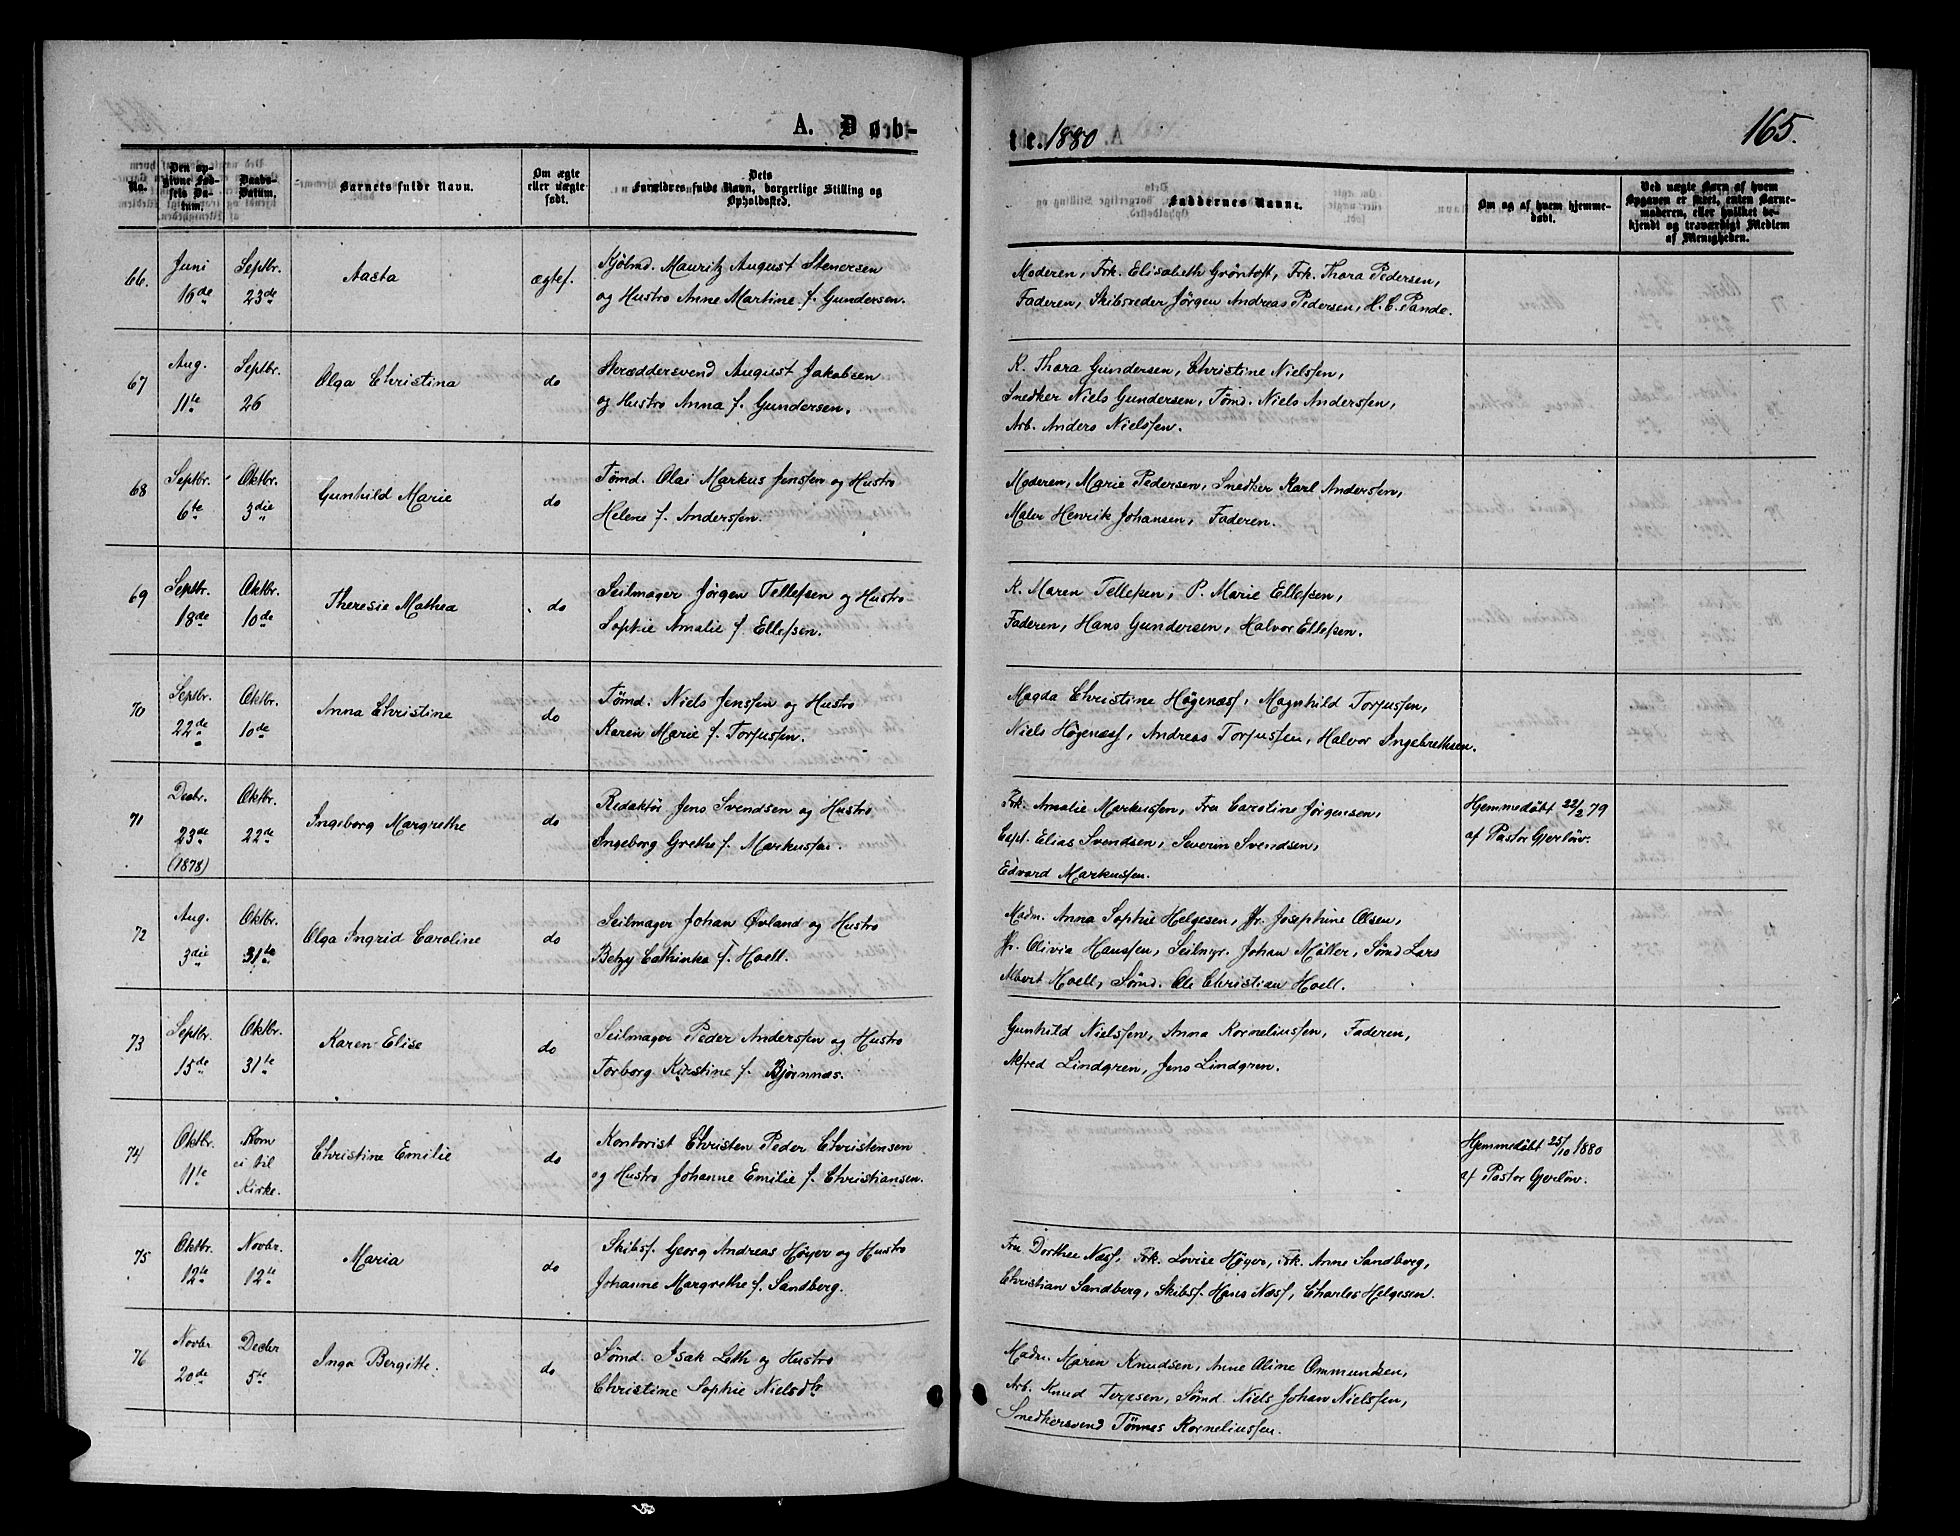 A. Døb-
te. 1880
165.
No.
Den op-
givne Fød-
sels Da-
tum.
Daabs-
Datum.
Barnets fulde Navn.
Om ægte
eller uægte
født.
Dets
Forældres fulde Navn, borgerlige Stilling og
Opholdssted.
Faddernes Navne.
Om og af hvem hjemme-
døbt.
Ved uægte Børn af hvem
Opgaven er skeet, enten Barne-
moderen, eller hvilket be-
kjendt og troværdigt Medlem
af Menigheden.
66.
Juni
16de
Septbr.
23de
Aasta
ægtef.
Kjøbmd. Mauritz August Stenersen
og Hustro Anne Martine f. Gundersen.
Moderen, Frk. Elisabeth Gröntoft, Frk. Thora Pedersen,
Faderen, Skibsreder Jörgen Andreas Pedersen, H. C. Pande.
67
Aug.
11te
Septbr.
26
Olga Christina
do
Skræddersvend August Jakobsen
og Hustro Anna f. Gundersen.
K. Thora Gundersen, Christine Nielssen,
Snedker Niels Gundersen, Tömd. Niels Anderssen,
Arb. Anders Nielssen.
68
Septbr.
6te
Oktbr.
3die
Gunhild Marie
do
Tömd. Olai Markus Jenssen og Hustro
Helene f. Anderssen.
Moderen, Marie Pedersen, Snedker Karl Anderssen,
Maler Henrik Johansen, Faderen.
69
Septbr.
18de
Oktbr.
10de
Theresie Mathea
do
Seilmager Jörgen Tellefsen og Hustro
Sophie Amalie f. Ellefsen.
K. Maren Tellefsen, P. Marie Ellefsen,
Faderen, Hans Gundersen, Halvor Ellefsen.
70
Septbr.
22de
Oktbr.
10de
Anna Christine
do
Tömd. Niels Jenssen og Hustro
Karen Marie f. Torjussen.
Magda Christine Högenæss, Magnhild Torjussen,
Niels Högenæss, Andreas Torjussen, Halvor Ingebrethsen.
71
Decbr.
23de
(1878)
Oktbr.
22de
Ingeborg Margrethe
do
Redaktör Jens Svendsen og Hustro
Ingeborg Grethe f. Markussen.
Frk. Amalie Markussen, Fru Caroline Jörgensen,
Capt. Elias Svendsen, Severin Svendsen,
Edvard Markussen.
Hjemmedöbt 22/2 79
af Pastor Gjerlöw.
72
Aug.
3die
Oktbr.
31te
Olga Ingrid Caroline
do
Seilmager Johan Øvland og Hustro
Betzy Cathinka f. Hoell.
Madm. Anna Sophie Helgesen, Jfr. Josephine Olsen,
Jfr. Olivia Hanssen, Seilmgr. Johan Möller, Sömd Lars
Albert Hoell, Sömd. Ole Christian Hoell.
73
Septbr.
15de
Oktbr.
31te
Karen Elise
do
Seilmager Peder Anderssen og Hustro
Torborg Kirstine f. Björnnæs.
Gunhild Nielssen, Anna Korneliussen, Faderen,
Alfred Lindgren, Jens Lindgren.
74
Oktbr.
11te
Kom
ei til
Kirke.
Christine Emilie
do
Kontorist Christen Peder Christensen
og Hustro Johanne Emilie f. Christiansen.
Hjemmedöbt 25/10 1880
af Pastor Gjerlöw.
75
Oktbr.
12te
Novbr.
12te
Maria
do
Skibsf. Georg Andreas Höyer og Hustro
Johanne Margrethe f. Sandberg.
Fru Dorthee Næss, Frk. Lovise Höyer, Frk. Anne Sandberg,
Christian Sandberg, Skibsf. Hans Næss, Charles Helgesen.
76
Novbr
20de
Decbr
5te
Inga Bergitte.
do
Sömd. Isak Leth og Hustro
Christine Sophie Nielsdtr
Madm. Maren Knudsen, Anne Oline Ommundsen,
Arb. Knud Terjesen, Sömd. Niels Johan Nielssen,
Snedkersvend Tönnes Korneliussen.